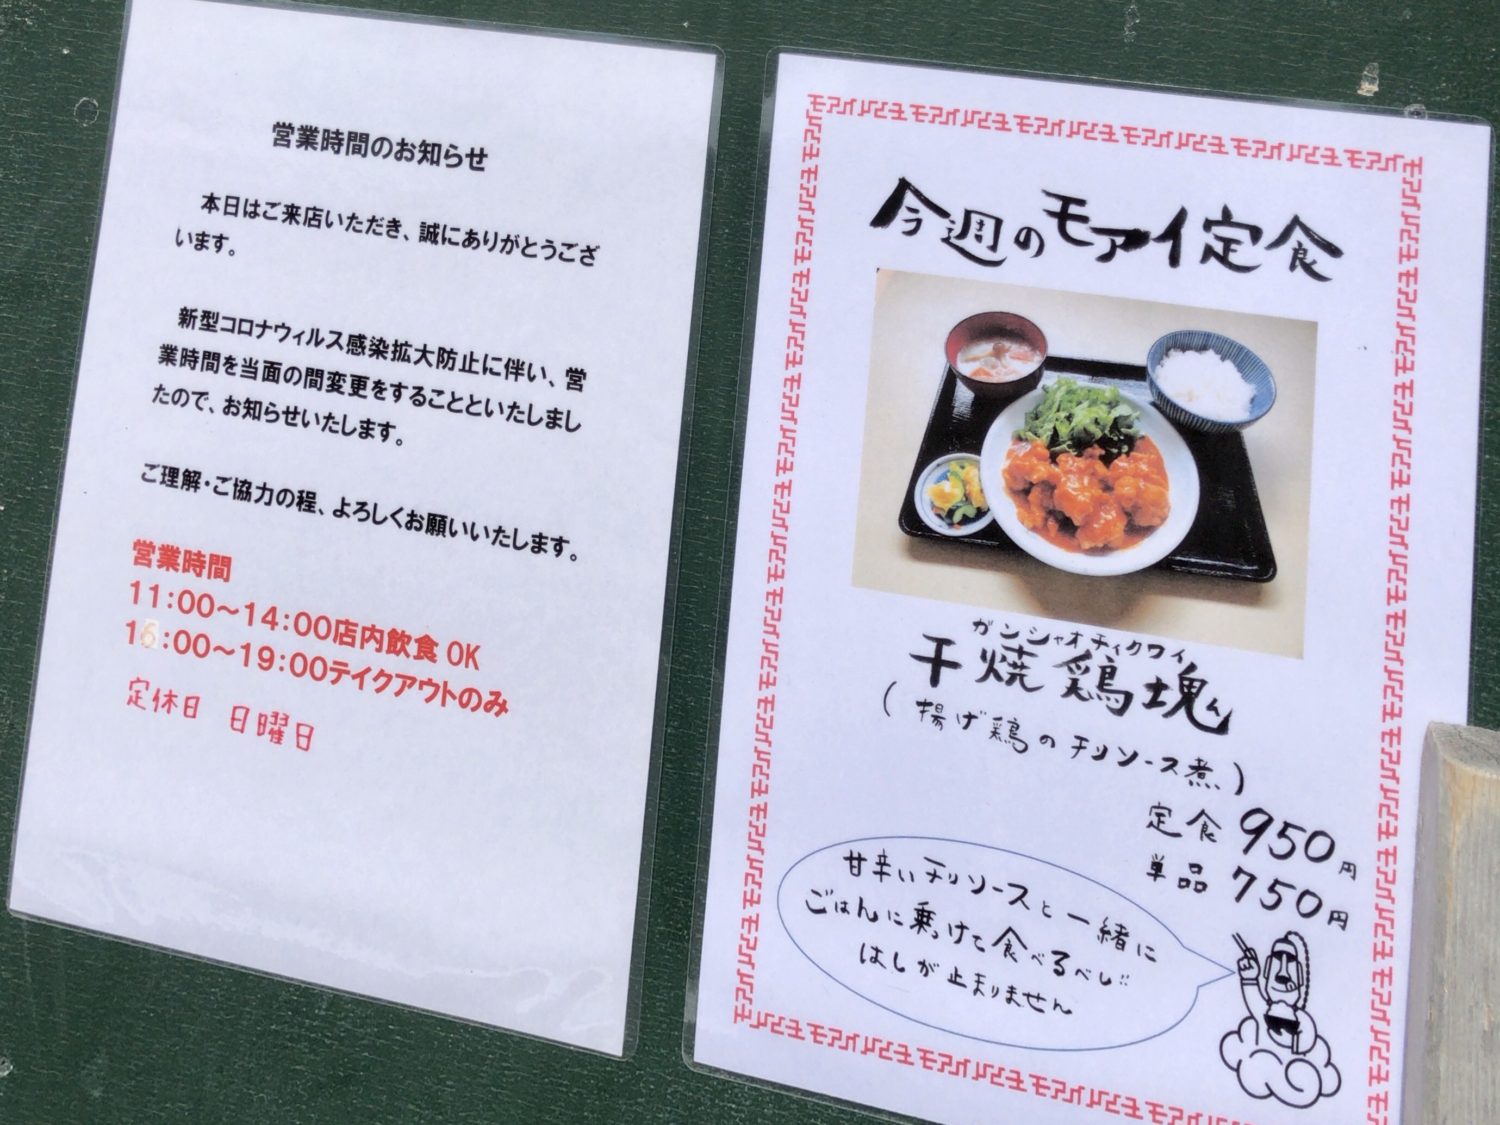 営業時間のお知らせ
本日はご来店いただき、誠にありがとうござ
います。
新型コロナウィルス感染拡大防止に伴い、営
業時間を当面の間変更をすることといたしまし
たので、お知らせいたします。
ご理解・ご協力の程、よろしくお願いいたします。
営業時間
11:00～14:00店内飲食 OK
16:00～19:00テイクアウトのみ
定休日 日曜日
今週のモアイ定食
ガンシャオチィクワイ
干焼鶏塊
(揚げ鶏のチリソース煮)
定食 950円
単品 750円
甘辛いチリソースと一緒に
ごはんに乗っけて食べるべし!!
はしが止まりません